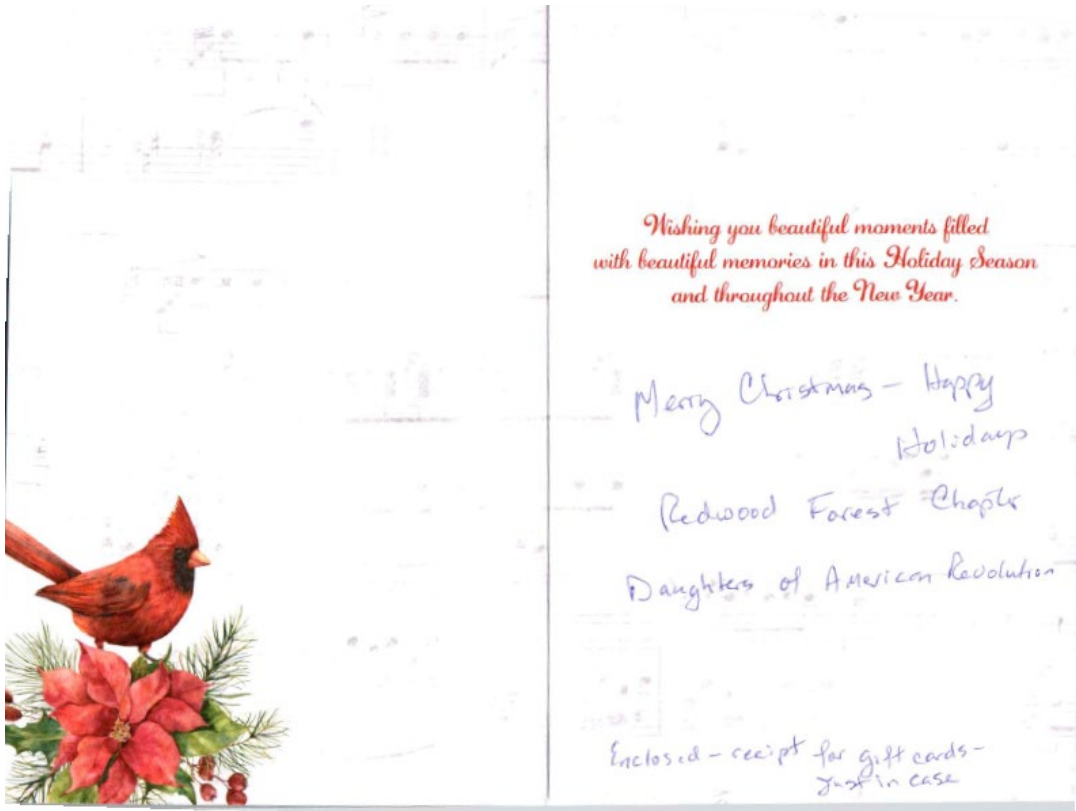 Wishing you beautiful moments filled
with beautiful memories in this Holiday Season
and throughout the New Year.
Merry Christmas - Happy
Holidays
Redwood Forest Chapter
Daughters of American Revolution
Enclosed - receipt for gift cards -
Just in case